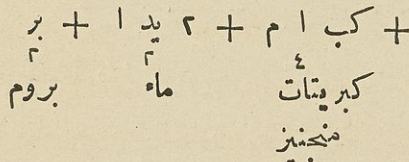 + كب ا م + ٢ يد ا + بر
٤ ٢ ٢
كبريتات ماء بروم
منجنيز